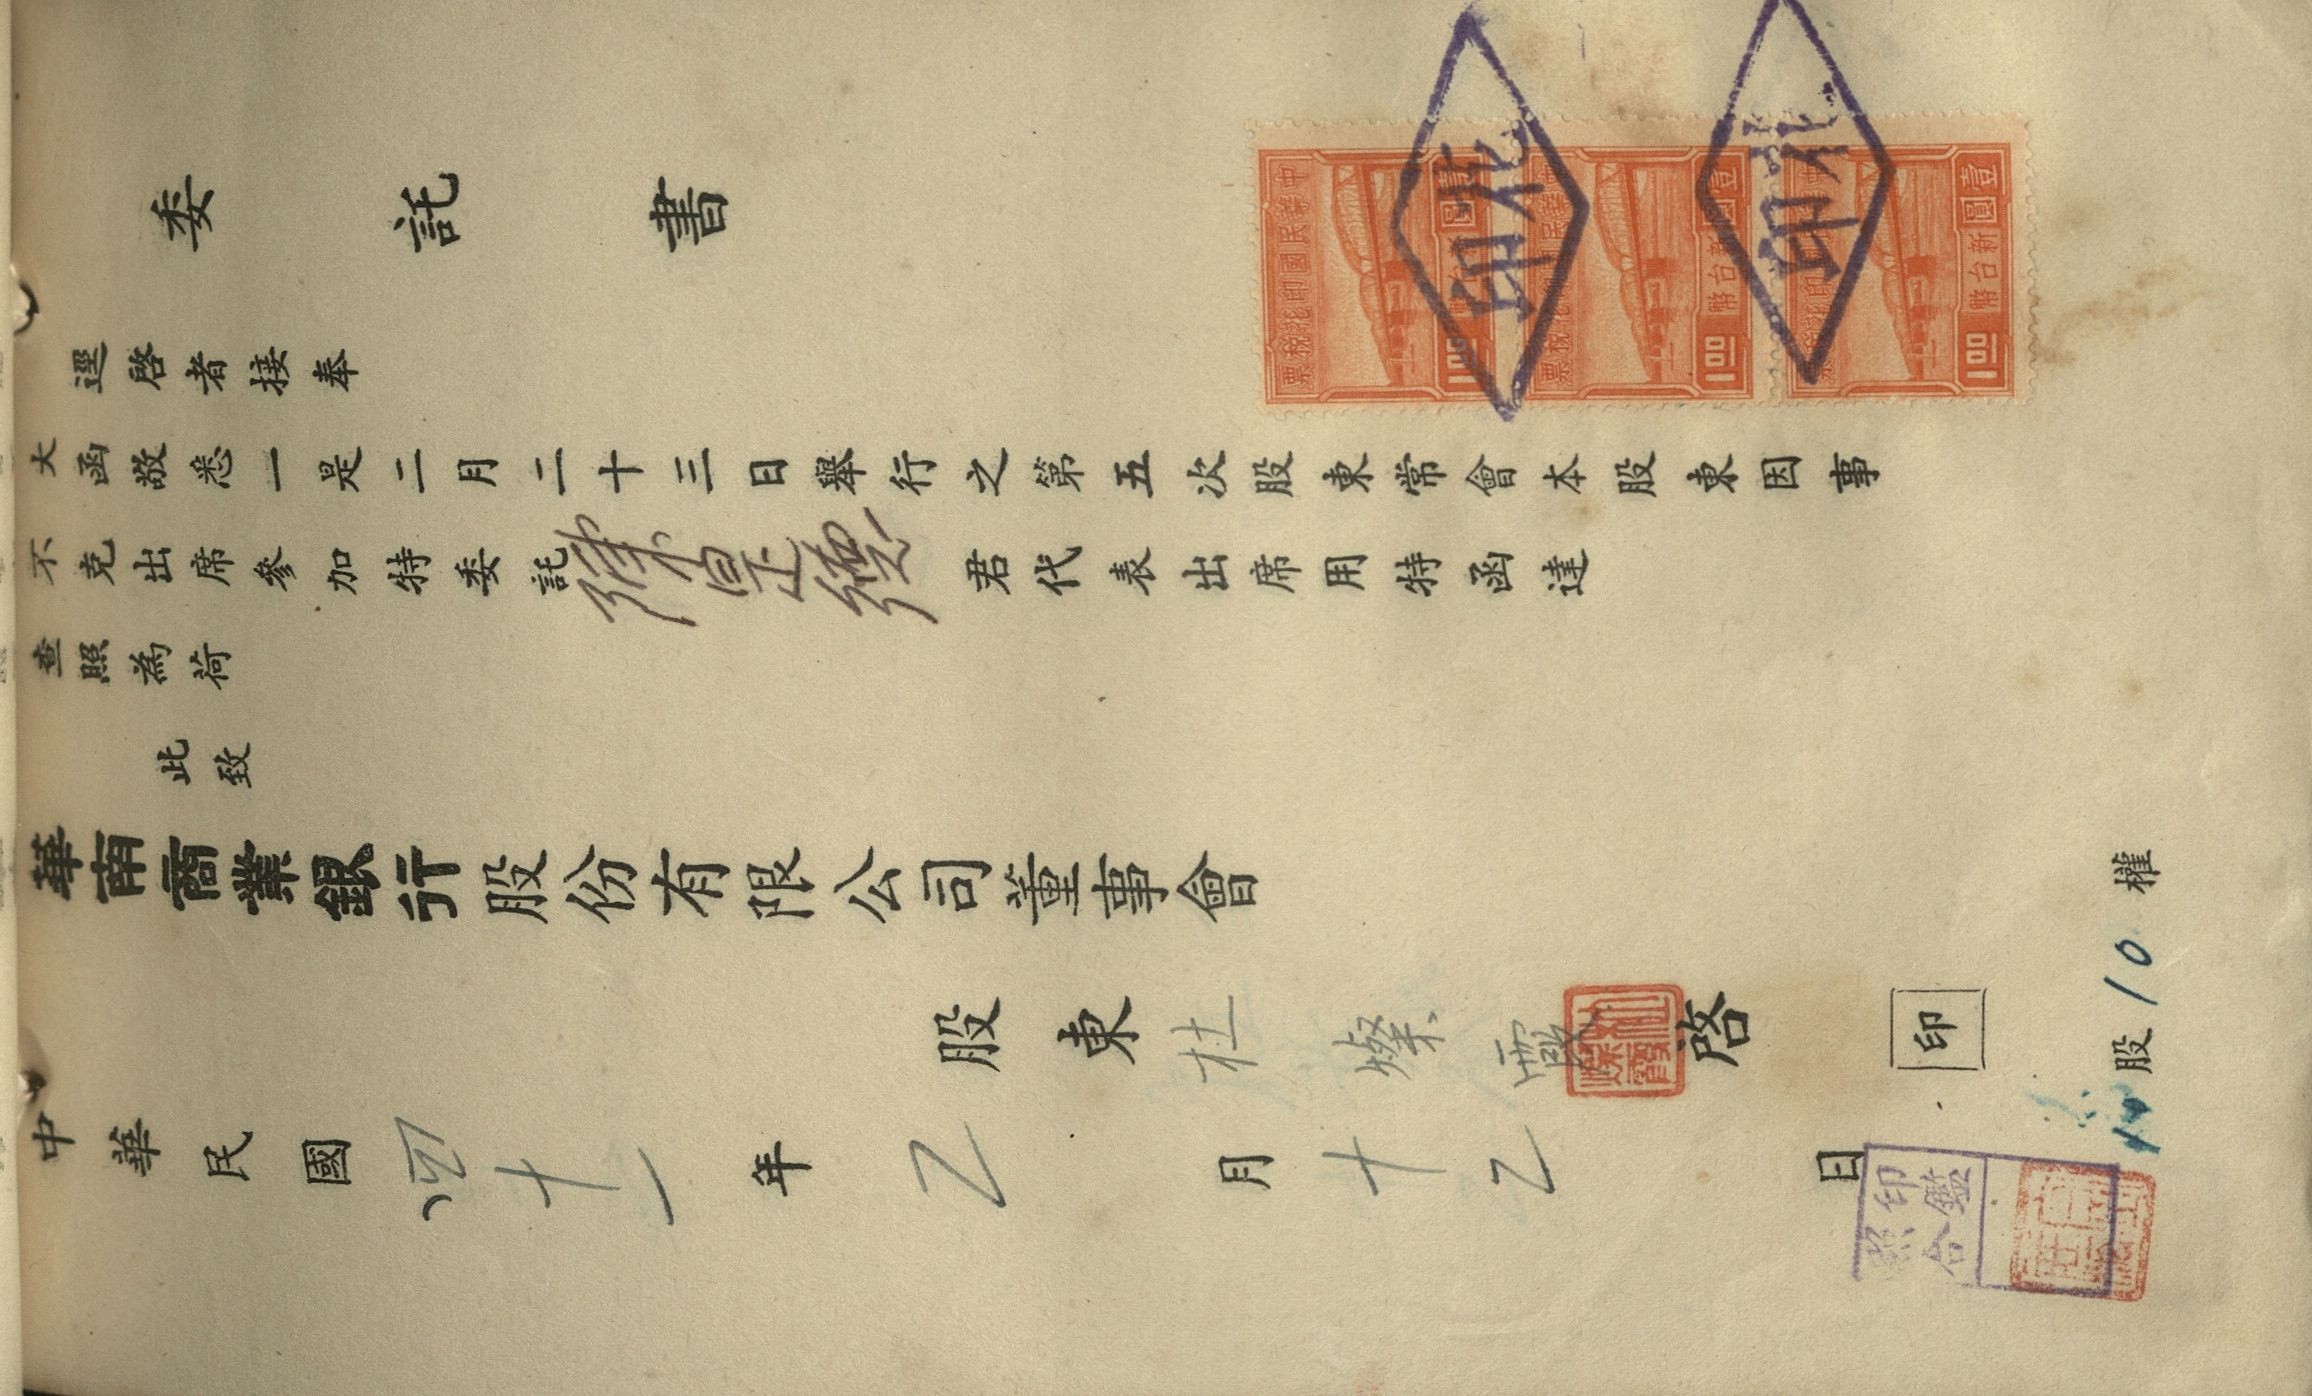 委託書
逕啓者接奉
大函敬悉一是二月二十三日舉行之第五次股東常會本股東因事
不克出席參加特委託 君代表出席用特函達
查照為荷
此致
華南商業銀行股份有限公司董事會
股東杜燦霞啓
印
股10權
中華民國四十一年乙月十乙日
印鑑
照合
中華民國印花稅票
壹圓
1.00
壹圓新台幣
1.00
壹圓新台幣
1.00
杜燦霞